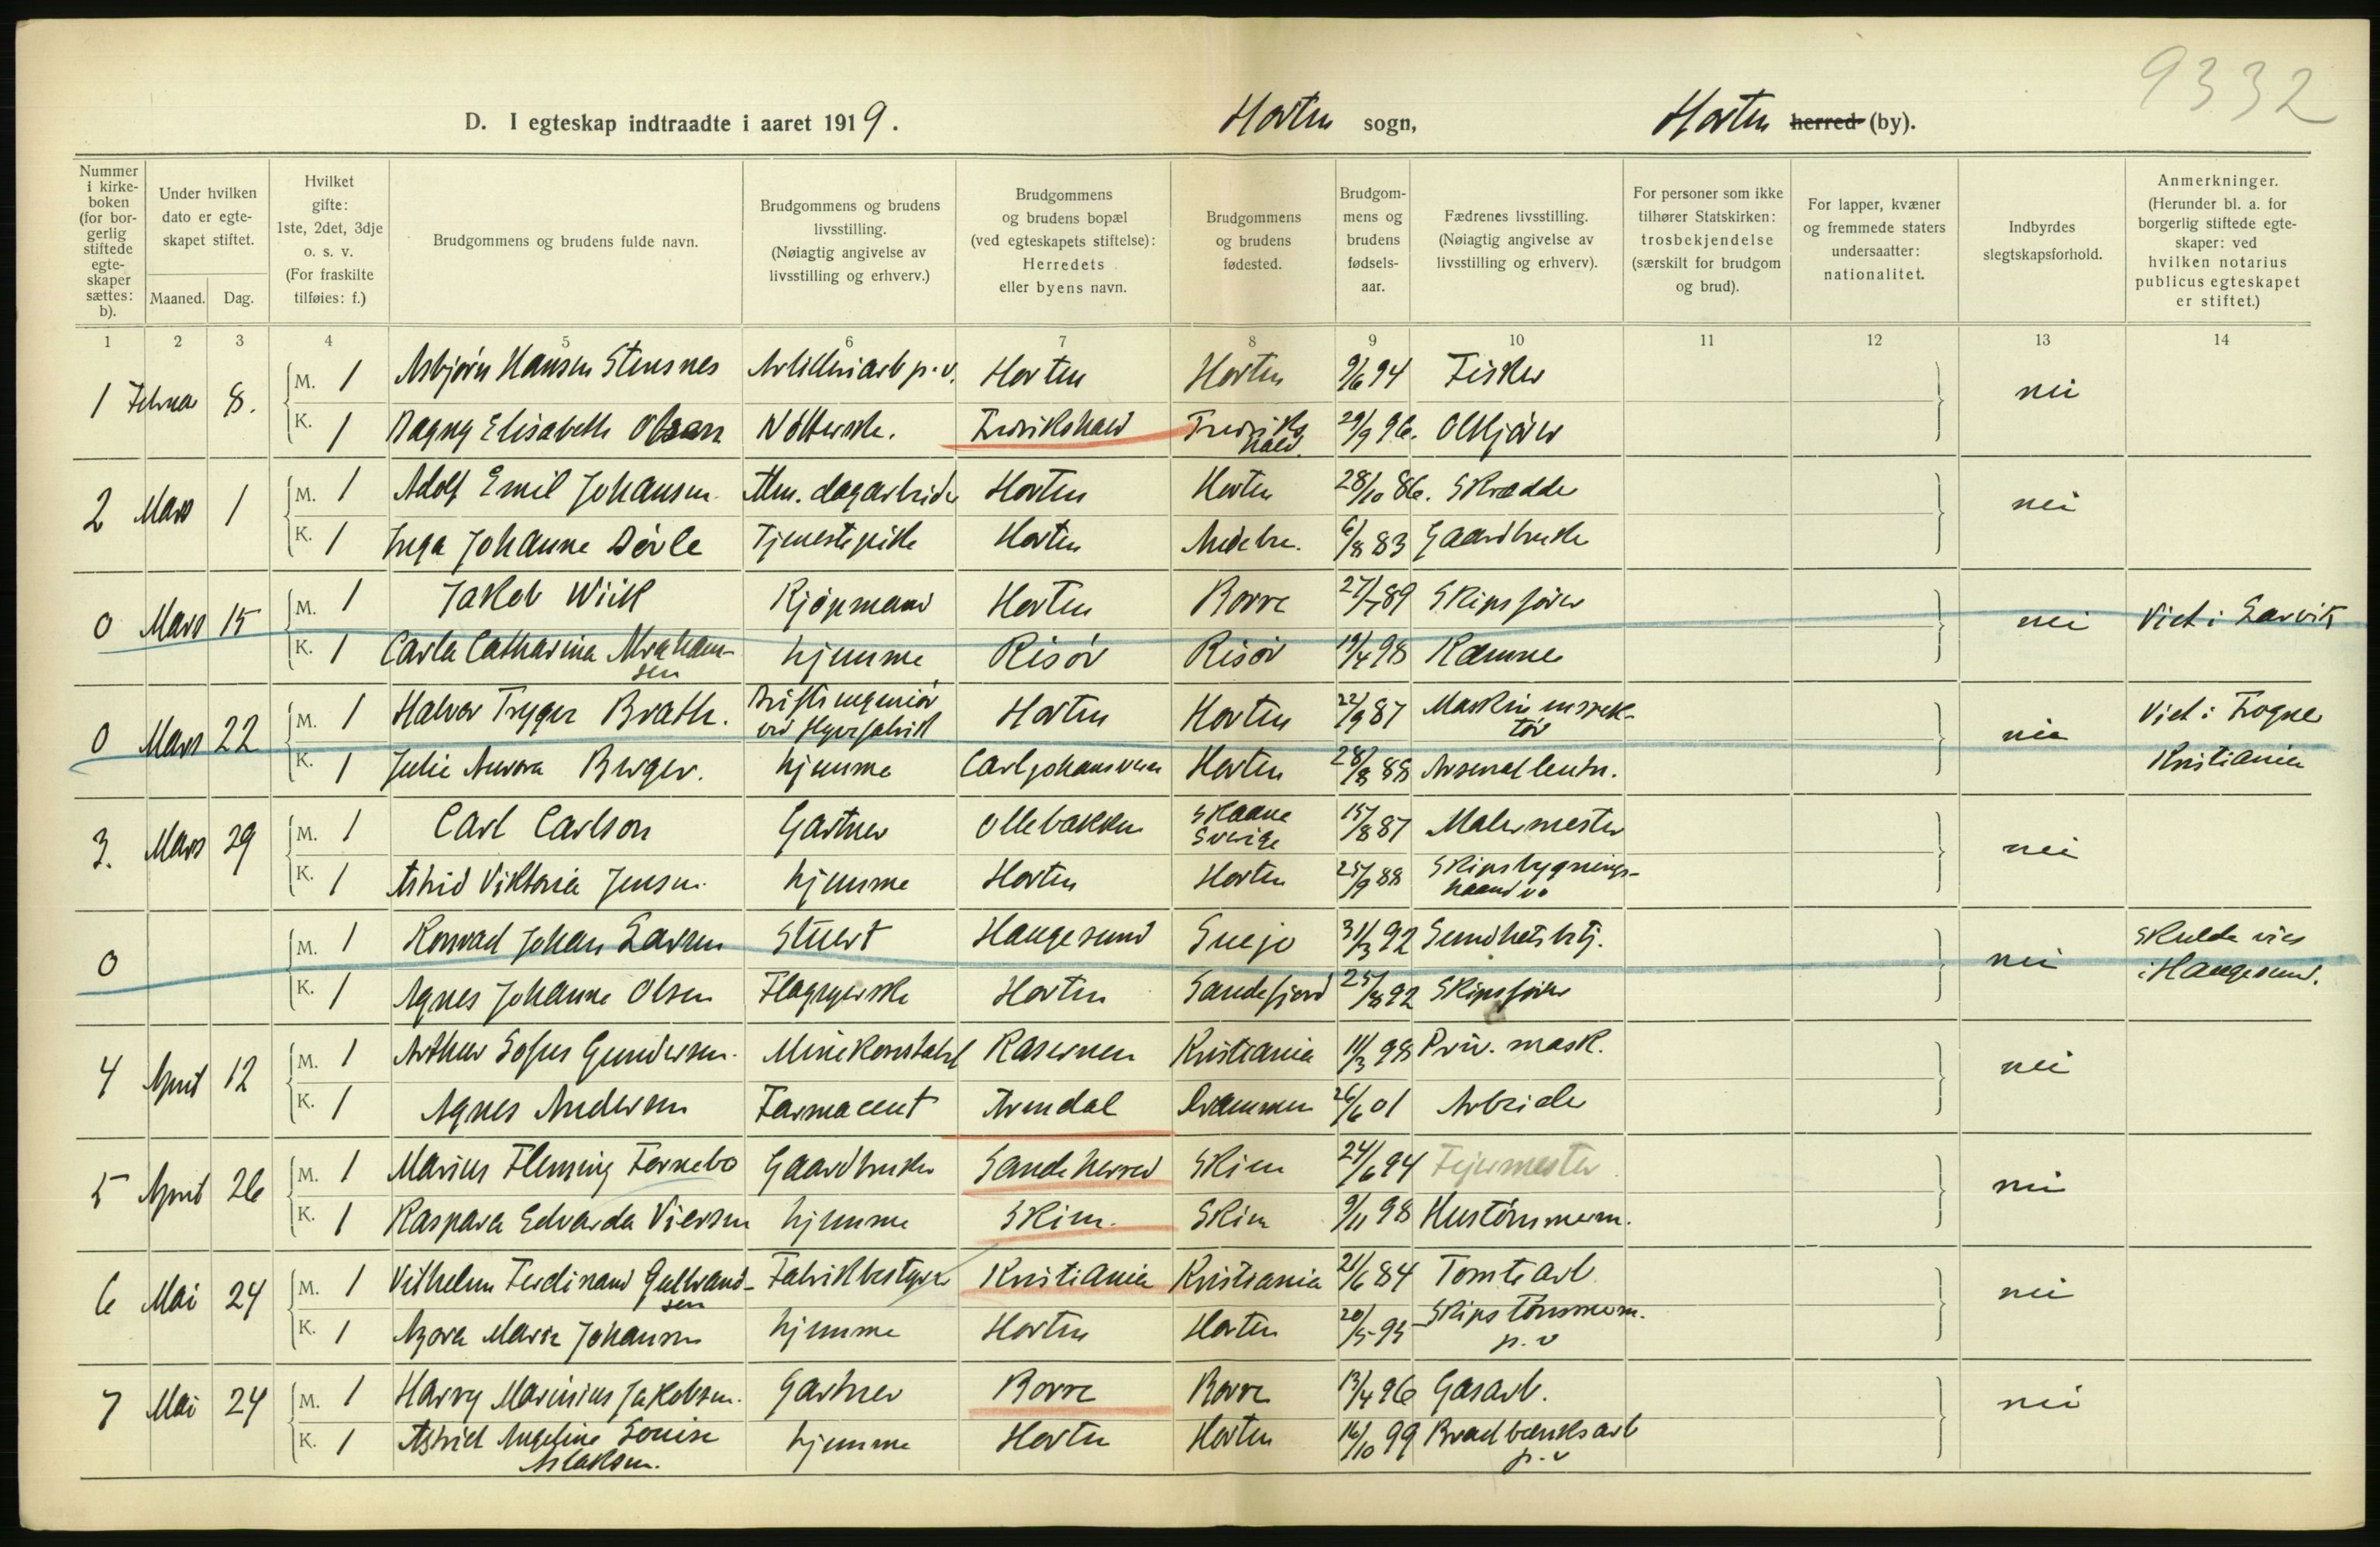 9332
D. I egteskap indtraadte i aaret 1919. Horten sogn, Horten herred (by).
Nummer i kirkeboken (for borgerlig stiftede egteskaper sættes: b).
Under hvilken dato er egteskapet stiftet.
Maaned. Dag.
Hvilket gifte: 1ste, 2det, 3dje o. s. v. (For fraskilte tilføies: f.)
Brudgommens og brudens fulde navn.
Brudgommens og brudens livsstilling. (Nøiagtig angivelse av livsstilling og erhverv.)
Brudgommens og brudens bopæl (ved egteskapets stiftelse): Herredets eller byens navn.
Brudgommens og brudens fødested.
Brudgommens og brudens fødselsaar.
Fædrenes livsstilling. (Nøiagtig angivelse av livsstilling og erhverv).
For personer som ikke tilhører Statskirken: trosbekjendelse (særskilt for brudgom og brud).
For lapper, kvæner og fremmede staters undersaatter: nationalitet.
Indbyrdes slegtskapsforhold.
Anmerkninger. (Herunder bl. a. for borgerlig stiftede egteskaper: ved hvilken notarius publicus egteskapet er stiftet.)
1 2 3 4 5 6 7 8 9 10 11 12 13 14
1 Februar 8. M. 1 Asbjørn Hansen Stensnes Artilleriarb p.v. Horten Horten 9/6 94 Fisker nei
K. 1 Dagny Elisabeth Olsen Fredrikshald Fredrikshald 29/9 96.
2 Mars 1 M. 1 Adolf Emil Johansen Alm. dagarbeider Horten Horten 28/10 86. Skrædder nei
K. 1 Inga Johanne Døvle Tjenestepike Horten Andebu. 6/8 83 Gaardbruker
0 Mars 15 M. 1 Jakob Wiik Kjøpmand Horten Borre 27/7 89 Skipsfører nei Viet i Larvik
K. 1 Carla Catharina Abrahamsen hjemme Risør Risør 19/4 98 Kæmner
0 Mars 22 M. 1 Halvor Trygve Brath. Driftsingeniør ved flyvefabrik Horten Horten 22/9 87 Maskininspektør nei Viet i Frogner Kristiania
K. 1 Julie Aurora Berger. hjemme Carljohansvern Horten 28/8 88
3. Mars 29 M. 1 Carl Carlson Gartner Ollebakken Skaane Sverige 15/8 87 Malermester nei
K. 1 Astrid Viktoria Jensen hjemme Horten Horten 25/9 88 Skipsbygningshaandv.
0 M. 1 Konrad Johan Larsen Stuert Haugesund 31/3 92 Sundhetsbtj. nei Skulde vies i Haugesund.
K. 1 Agnes Johanne Olsen Horten Sandefjord 25/8 92 Skipsfører
4 April 12 M. 1 Arthur Sofus Gundersen Minekonstabel Kasernen Kristiania 11/3 98 Priv. mask. nei
K. 1 Agnes Andersen Farmaceut Arendal Drammen 26/6 01 Arbeider
5 April 26 M. 1 Marius Fleming Fornebo Gaardbruker Sandeherred Skien 24/6 94 Feiermester nei
K. 1 Kaspara Edvarda Viersen hjemme Skien. Skien 9/11 98 Hustømmerm.
6 Mai 24 M. 1 Vilhelm Ferdinand Gulbrandsen Fabrikbestyrer Kristiania Kristiania 21/6 84 Tomtearb. nei
K. 1 Azora Marie Johansen hjemme Horten Horten 20/5 95 Skipstømmerm. p.v
7 Mai 24 M. 1 Harry Marinius Jakobsen. Gartner Borre Borre 13/4 96 Gasarb. nei
K. 1 Astrid Angeline Louise Aslaksen. hjemme Horten Horten 16/10 99 p.v